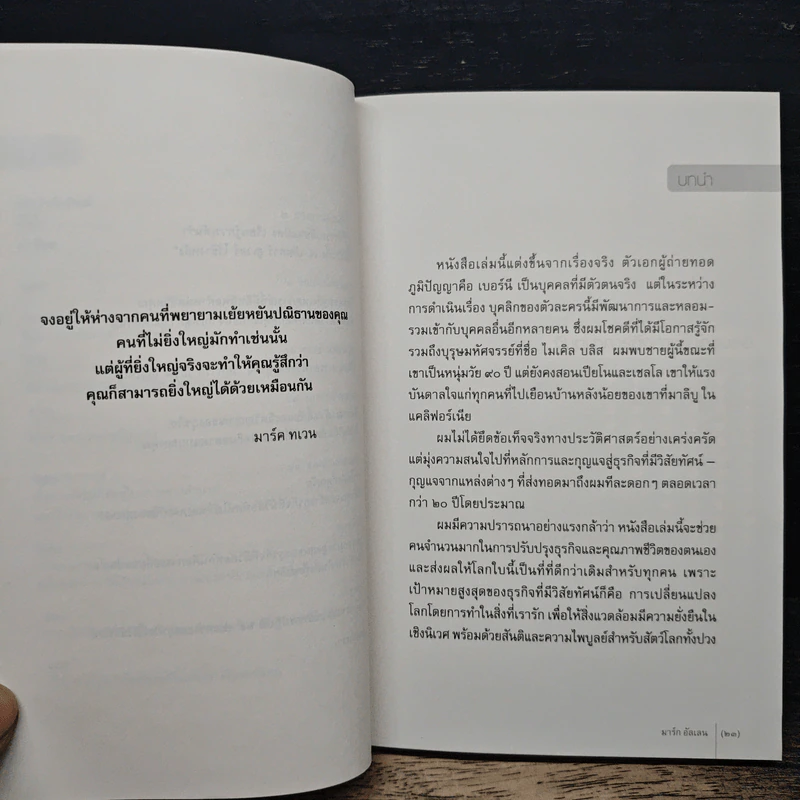 จงอยู่ให้ห่างจากคนที่พยายามเย้ยหยันปณิธานของคุณ
คนที่ไม่ยิ่งใหญ่มักทำเช่นนั้น
แต่ผู้ที่ยิ่งใหญ่จริงจะทำให้คุณรู้สึกว่า
คุณก็สามารถยิ่งใหญ่ได้ด้วยเหมือนกัน
มาร์ค ทเวน
บทนำ
หนังสือเล่มนี้แต่งขึ้นจากเรื่องจริง ตัวเอกผู้ถ่ายทอด
ภูมิปัญญาคือ เบอร์นี เป็นบุคคลที่มีตัวตนจริง แต่ในระหว่าง
การดำเนินเรื่อง บุคลิกของตัวละครนี้มีพัฒนาการและหลอม-
รวมเข้ากับบุคคลอื่นอีกหลายคน ซึ่งผมโชคดีที่ได้มีโอกาสรู้จัก
รวมถึงบุรุษมหัศจรรย์ที่ชื่อ ไมเคิล บลิส ผมพบชายผู้นี้ขณะที่
เขาเป็นหนุ่มวัย ๙๐ ปี แต่ยังคงสอนเปียโนและเชลโล เขาให้แรง
บันดาลใจแก่ทุกคนที่ไปเยือนบ้านหลังน้อยของเขาที่มาลิบู ใน
แคลิฟอร์เนีย
ผมไม่ได้ยึดข้อเท็จจริงทางประวัติศาสตร์อย่างเคร่งครัด
แต่มุ่งความสนใจไปที่หลักการและกุญแจสู่ธุรกิจที่มีวิสัยทัศน์ –
กุญแจจากแหล่งต่างๆ ที่ส่งทอดมาถึงผมทีละดอกๆ ตลอดเวลา
กว่า ๒๐ ปีโดยประมาณ
ผมมีความปรารถนาอย่างแรงกล้าว่า หนังสือเล่มนี้จะช่วย
คนจำนวนมากในการปรับปรุงธุรกิจและคุณภาพชีวิตของตนเอง
และส่งผลให้โลกใบนี้เป็นที่ที่ดีกว่าเดิมสำหรับทุกคน เพราะ
เป้าหมายสูงสุดของธุรกิจที่มีวิสัยทัศน์ก็คือ การเปลี่ยนแปลง
โลกโดยการทำในสิ่งที่เรารัก เพื่อให้สิ่งแวดล้อมมีความยั่งยืนใน
เชิงนิเวศ พร้อมด้วยสันติและความไพบูลย์สำหรับสัตว์โลกทั้งปวง
มาร์ก อัลเลน (๒๑)